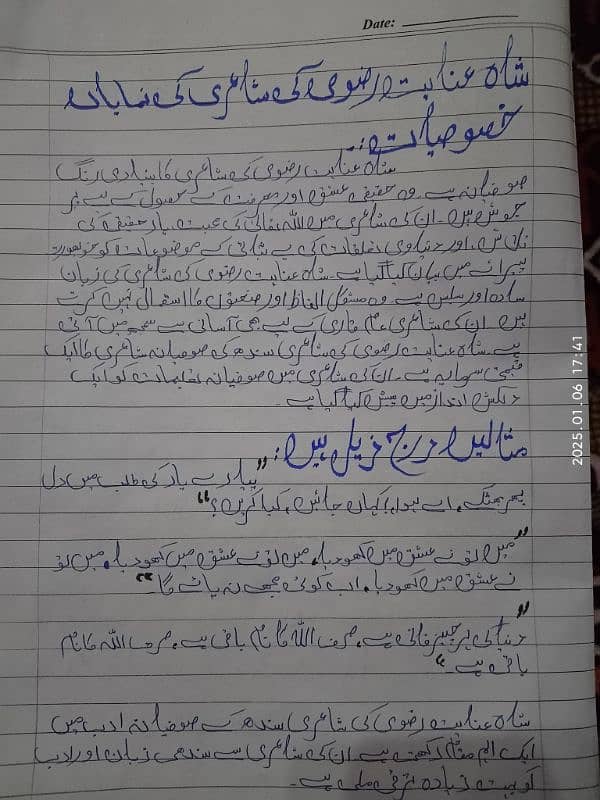 Date:
شاہ عنایت رضوی کی شاعری کی نمایاں
خصوصیات:-
شاہ عنایت رضوی کی شاعری کا بنیادی رنگ
صوفیانہ ہے۔ وہ حقیقی عشق اور معرفت کے حصول کے لیے پر
جوش ہیں۔ ان کی شاعری میں اللہ تعالیٰ کی محبت، یار حقیقی کی
تلاش، اور دنیاوی تعلقات کی بے ثباتی کے موضوعات کو خوبصورت
پیرائے میں بیان کیا گیا ہے۔ شاہ عنایت رضوی کی شاعری کی زبان
سادہ اور سلیس ہے۔ وہ مشکل الفاظ اور صنعتوں کا استعمال نہیں کرتے
ہیں۔ ان کی شاعری عام قاری کے لیے بھی آسانی سے سمجھ میں آتی
ہے۔ شاہ عنایت رضوی کی شاعری سندھ کی صوفیانہ شاعری کا ایک
قیمتی سرمایہ ہے۔ ان کی شاعری میں صوفیانہ تعلیمات کو ایک
دلکش انداز میں پیش کیا گیا ہے۔
مثالیں درج ذیل ہیں:
"پیارے یار کی طلب میں دل
پھر بھٹک، اے ہوا، کہاں جائیں، کیا کریں؟"
"میں تو نے عشق میں کھو دیا، میں تو نے عشق میں کھو دیا، میں تو
نے عشق میں کھو دیا، اب کوئی مجھے نہ پائے گا۔"
"دنیا کی ہر چیز فانی ہے، صرف اللہ کا نام باقی ہے، صرف اللہ کا نام
باقی ہے۔"
شاہ عنایت رضوی کی شاعری سندھ کے صوفیانہ ادب میں
ایک اہم مقام رکھتی ہے۔ ان کی شاعری سے سندھی زبان اور ادب
کو بہت زیادہ ترقی ملی ہے۔
2025.01.06 17:41